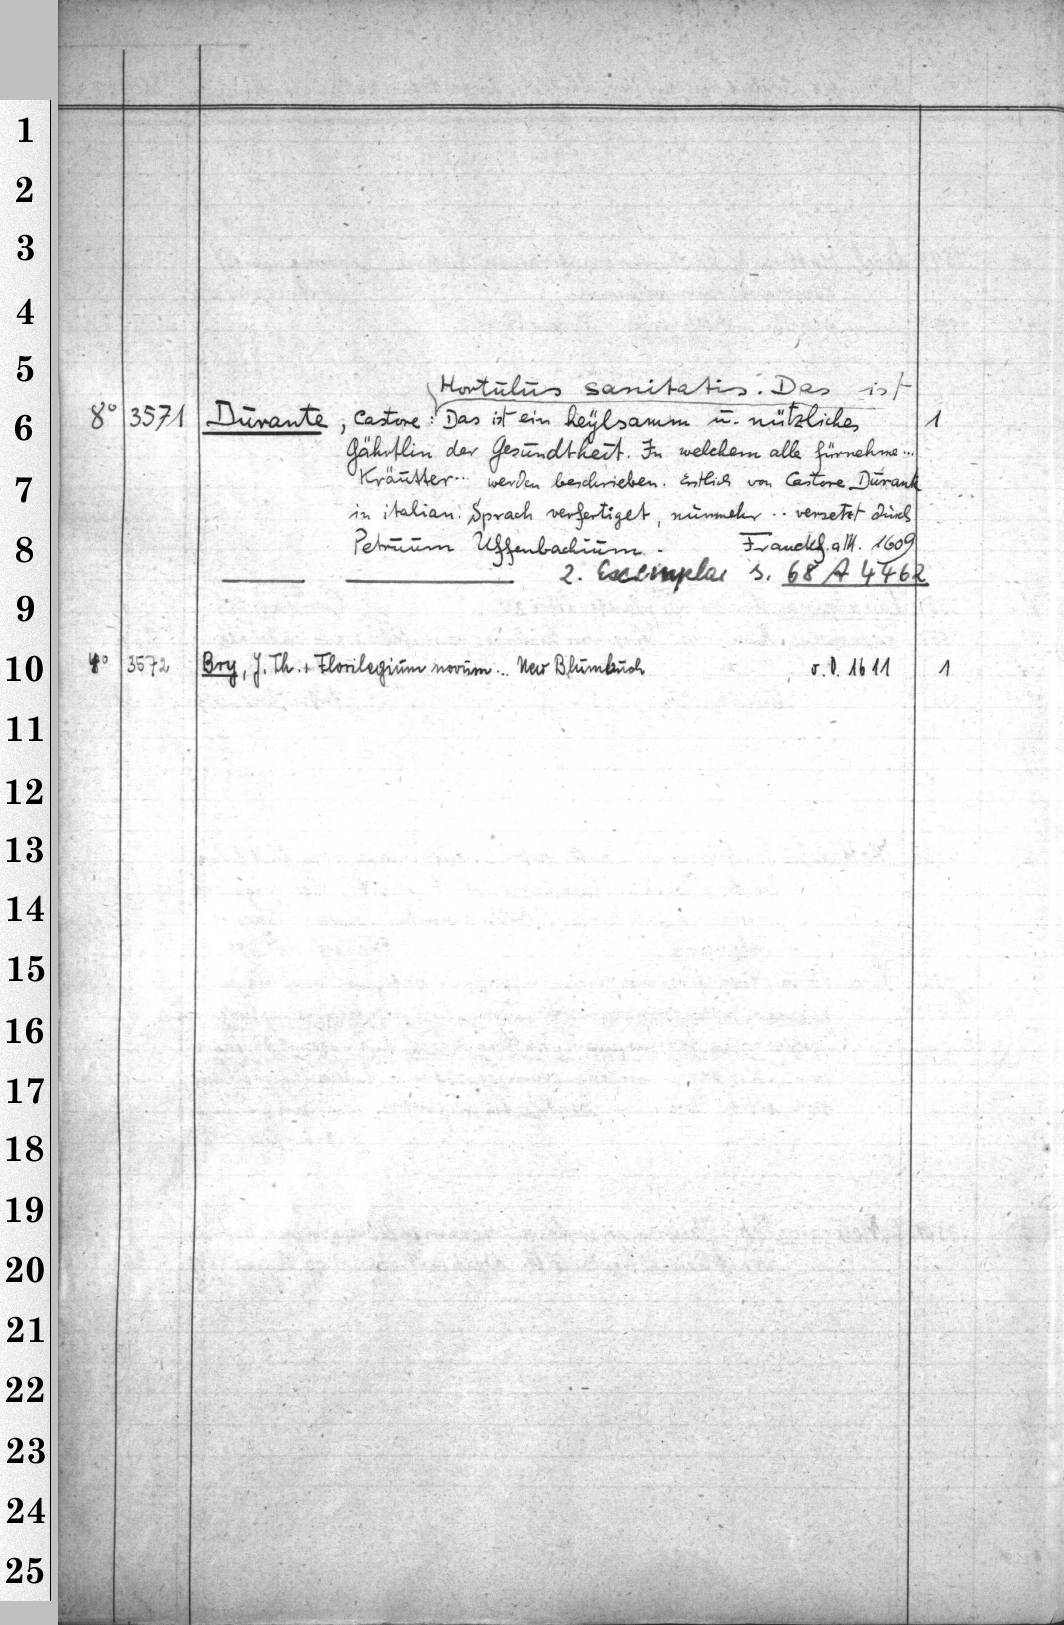 1
2
3
4
5
Hortulus sanitatis. Das ist
6 8° 3571 Durante, Castore: Das ist ein heÿlsamm u. nützliches 1
Gährtlin der Gesundtheit. In welchem alle fürnehme...
7 Kräutter... werden beschrieben. Erstlich von Castore Durante
in italian. Sprach verfertiget, nunmehr .. versetzt durch
8 Petruum Uffenbachium. Franckf. a/M. 1609
2. Exemplar s. 68 A 4462
9
10 4° 3572 Bry, J. Th.: Florilegium novum... New Blumbuch o. O. 1611 1
11
12
13
14
15
16
17
18
19
20
21
22
23
24
25